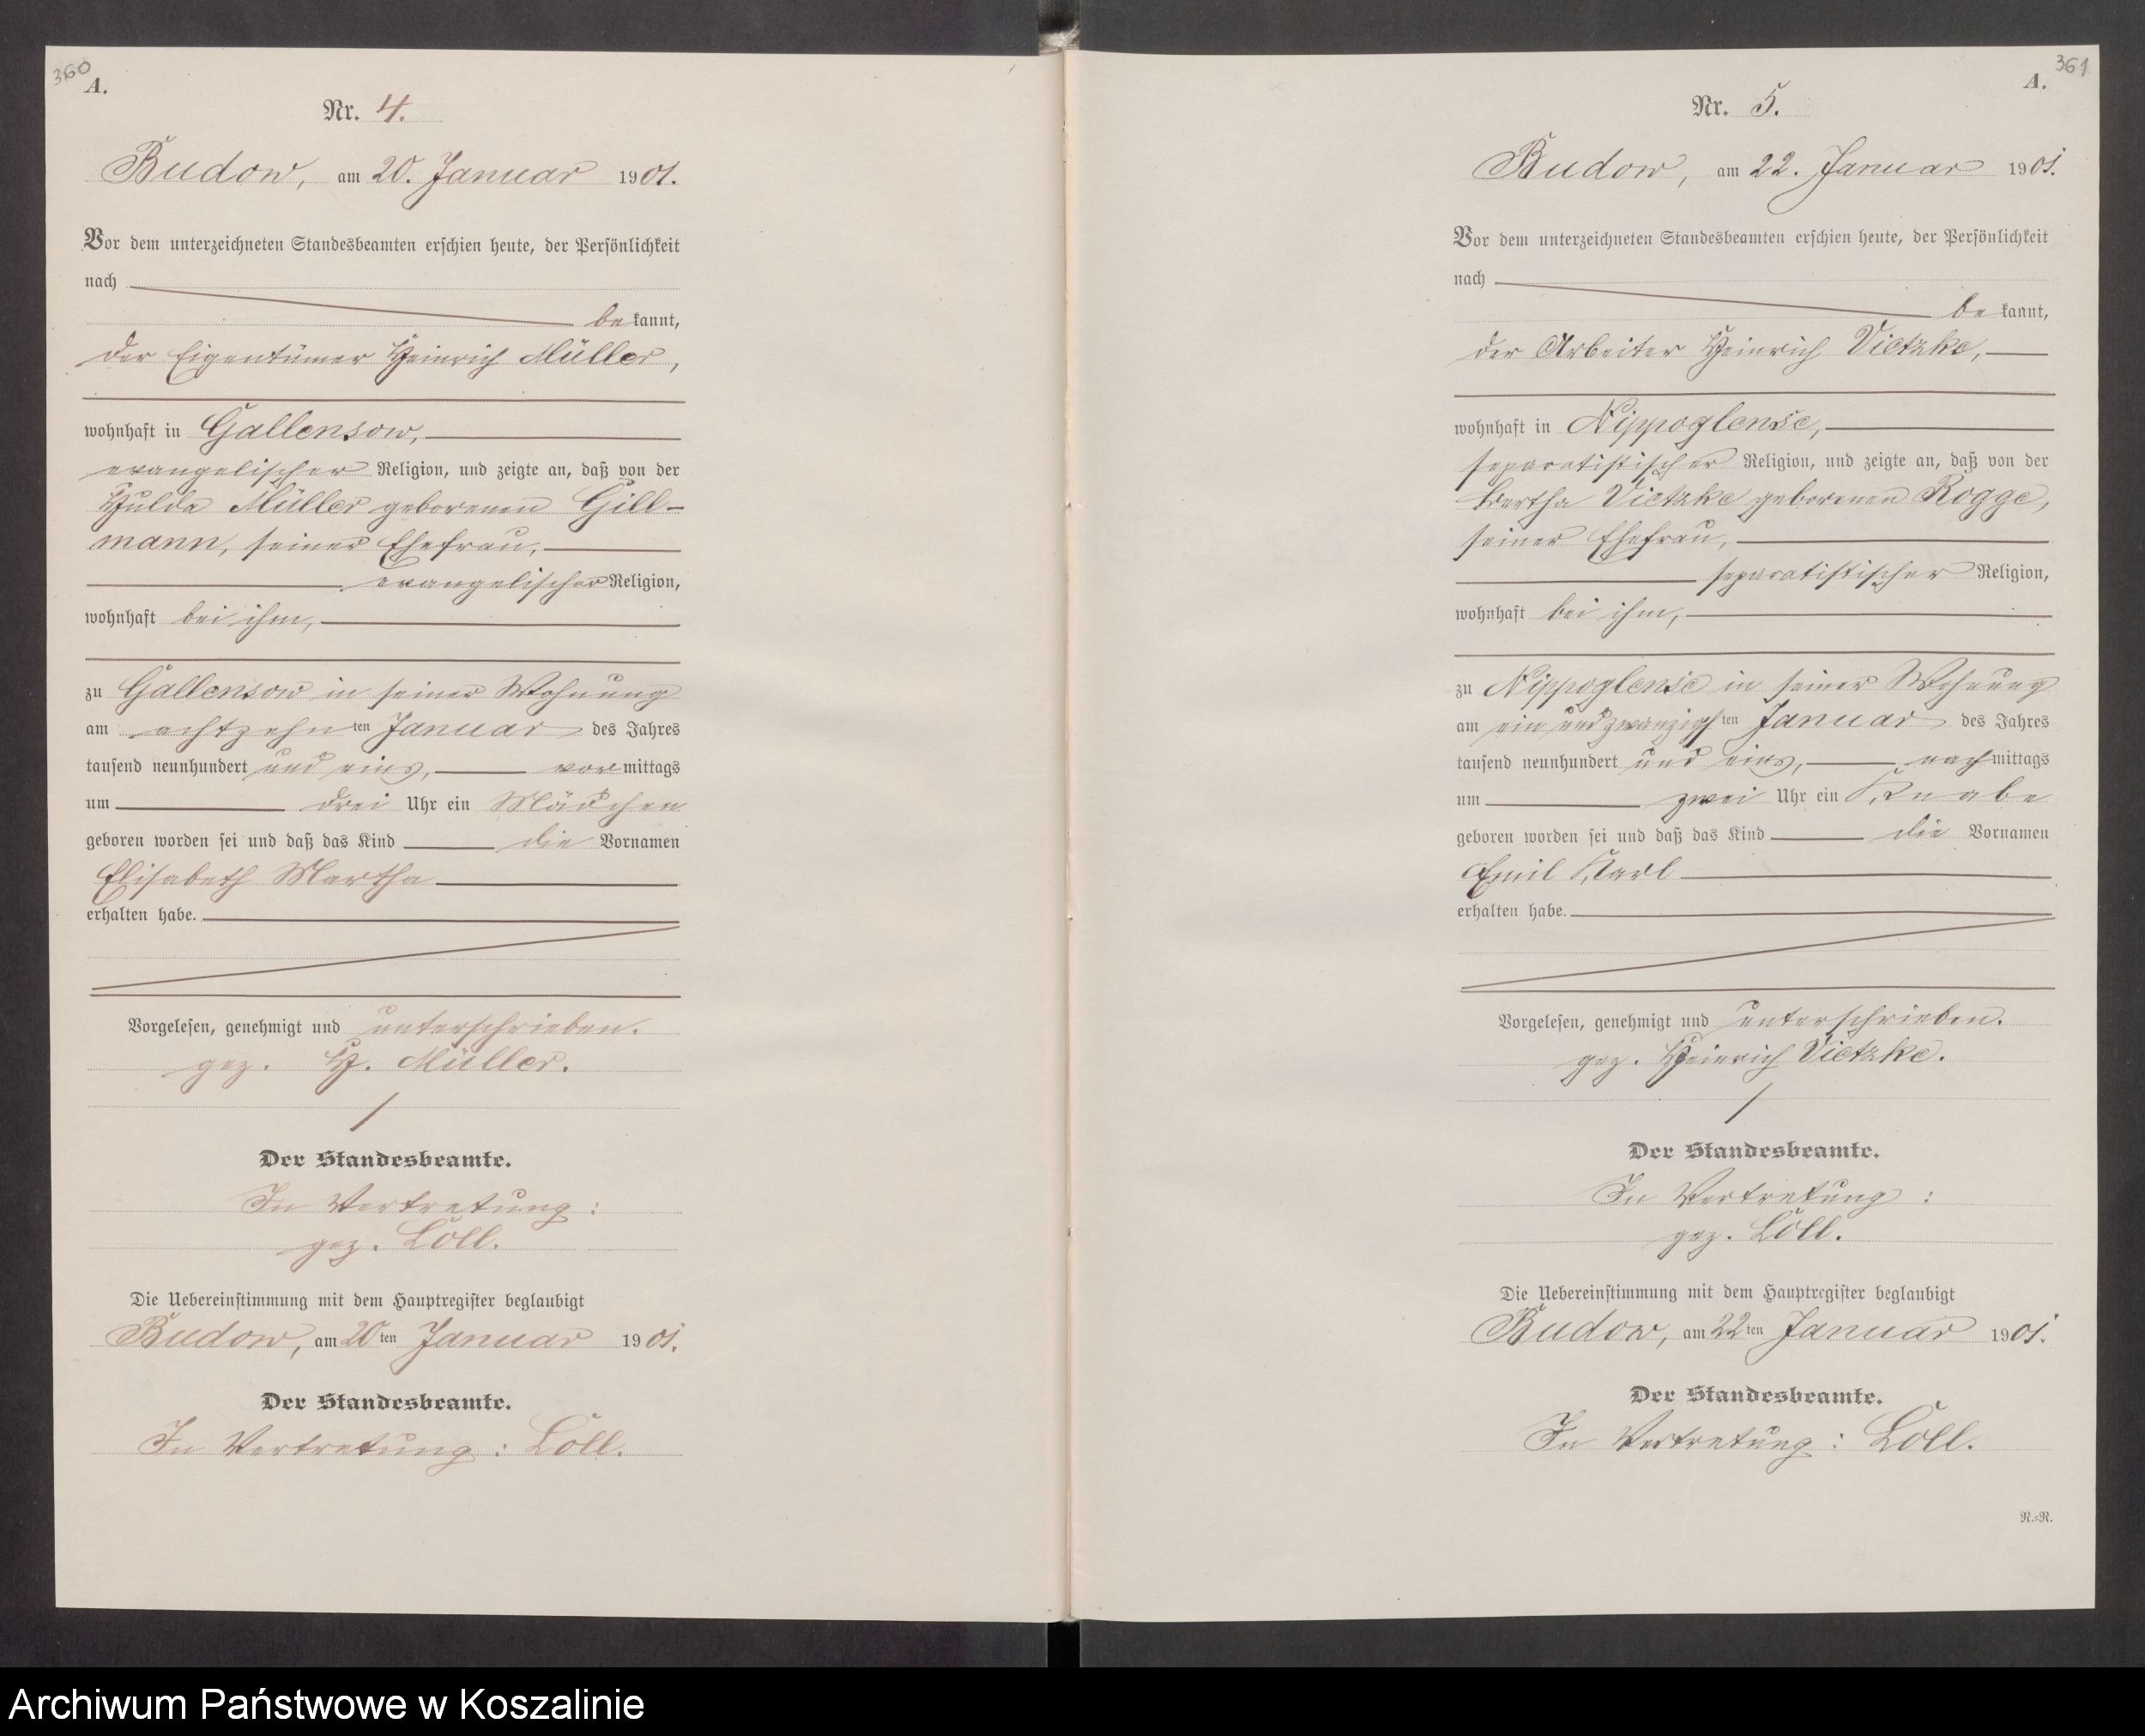 360
A.
Nr. 4.
Budow, am 20. Januar 1901.
Vor dem unterzeichneten Standesbeamten erschien heute, der Persönlichkeit
nach
be kannt,
der Eigentümer Heinrich Müller,
wohnhaft in Gallensow,
evangelischer Religion, und zeigte an, daß von der
Hulda Müller geborenen Gill-
mann, seiner Ehefrau,
evangelischer Religion,
wohnhaft bei ihm,
zu Gallensow in seiner Wohnung
am achtzehn ten Januar des Jahres
tausend neunhundert und eins, vor mittags
um drei Uhr ein Mädchen
geboren worden sei und daß das Kind die Vornamen
Elisabeth Martha
erhalten habe.
Vorgelesen, genehmigt und unterschrieben.
gez. H. Müller.
Der Standesbeamte.
In Vertretung:
gez. Löll.
Die Uebereinstimmung mit dem Hauptregister beglaubigt
Budow, am 20ten Januar 1901.
Der Standesbeamte.
In Vertretung: Löll.
361
A.
Nr. 5.
Budow, am 22. Januar 1901.
Vor dem unterzeichneten Standesbeamten erschien heute, der Persönlichkeit
nach
be kannt,
der Arbeiter Heinrich Vietzke,
wohnhaft in Nippoglense,
separatistischer Religion, und zeigte an, daß von der
Bertha Vietzke geborenen Rogge,
seiner Ehefrau,
separatistischer Religion,
wohnhaft bei ihm,
zu Nippoglense in seiner Wohnung
am ein und zwanzigsten Januar des Jahres
tausend neunhundert und eins, nach mittags
um zwei Uhr ein Knabe
geboren worden sei und daß das Kind die Vornamen
Emil Karl
erhalten habe.
Vorgelesen, genehmigt und unterschrieben.
gez. Heinrich Vietzke.
Der Standesbeamte.
In Vertretung:
gez. Löll.
Die Uebereinstimmung mit dem Hauptregister beglaubigt
Budow, am 22ten Januar 1901.
Der Standesbeamte.
In Vertretung: Löll.
N.=N.
Archiwum Państwowe w Koszalinie